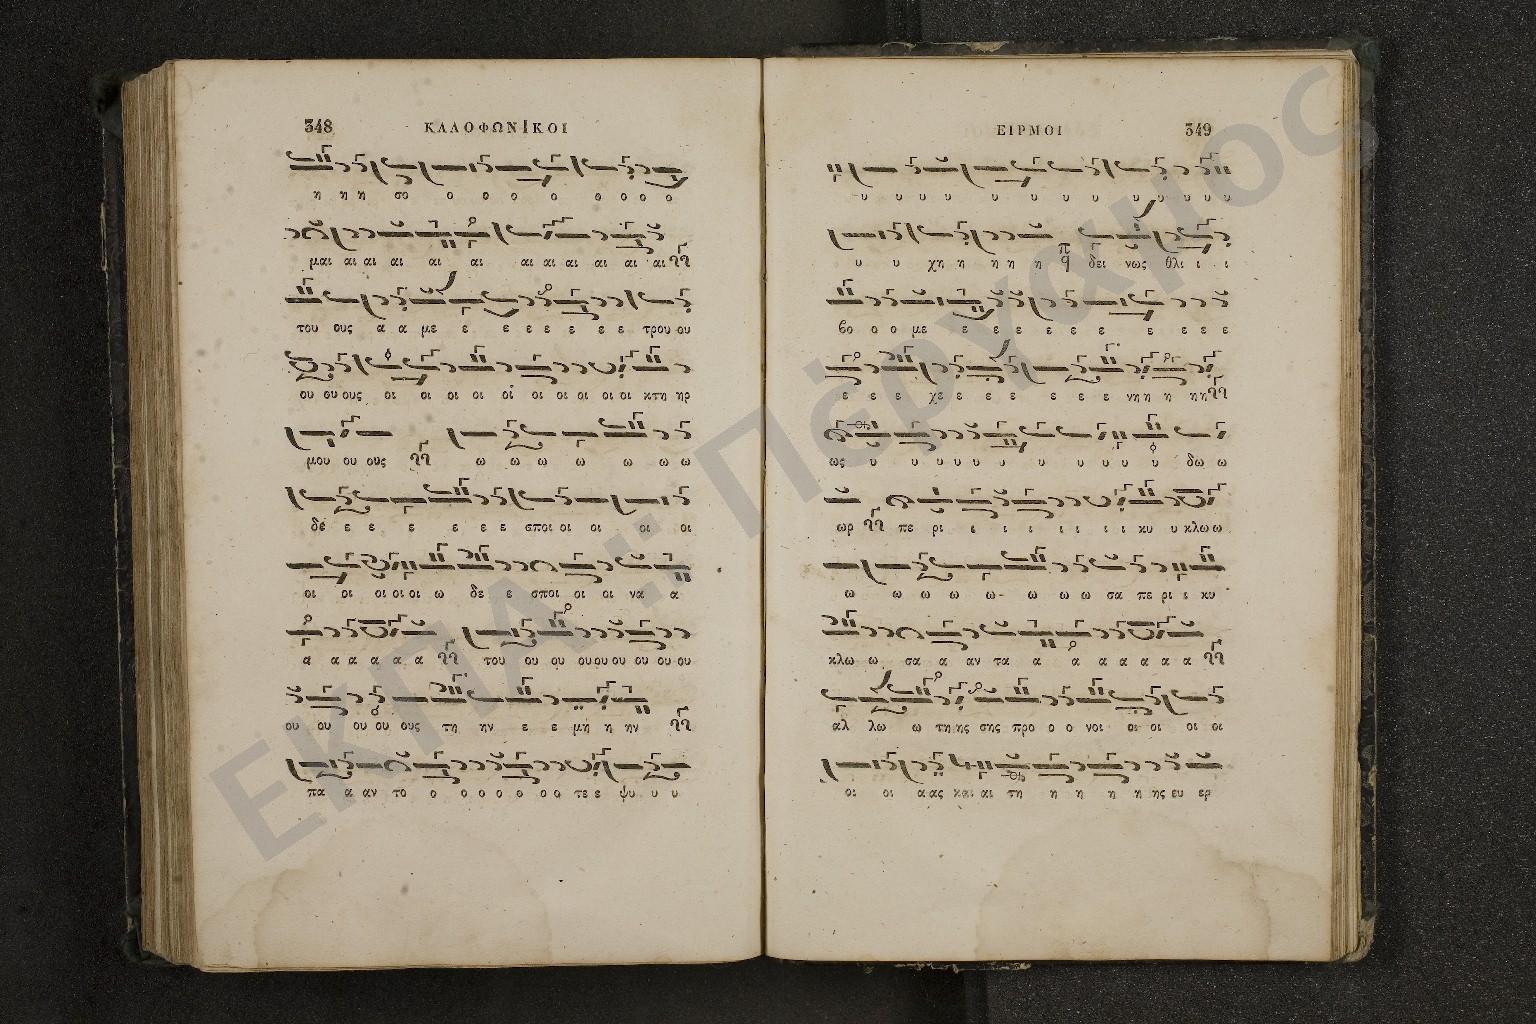 348 ΚΑΛΟΦΩΝΙΚΟΙ
η η η σο ο ο ο ο ο ο ο ο
μαι αι αι αι αι αι αι αι αι αι αι αι
του ους α α με ε ε ε ε ε ε ε τρου ου
ου ου ους οι οι οι οι οἱ οι οι οι οι οι κτη ηρ
μου ου ους ω ω ω ω ω ω ω
δέ ε ε ε ε ε ε σποι οι οι οι οι
οι οι οι οι οι ω δε ε σποι οι οι να α
α α α α α α του ου ου ου ου ου ου ου ου
ου ου ου ου ους τη ην ε ε μη η ην
πα α αν το ο ο ο ο ο ο τε ε ψυ υ υ
ΕΙΡΜΟΙ 349
υ υ υ υ υ υ υ υ υ υ υ υ
υ υ χη η η η η π δει νως θλι ι ι
βο ο ο με ε ε ε ε ε ε ε ε ε ε
ε ε ε χε ε ε ε ε ε ε νη η η ηη
ως υ υ υ υ υ υ υ υ υ υ δω ω
ωρ πε ρι ι ι ι ι ι ι ι κυ υ κλω ω
ω ω ω ω ω ω ω ω σα πε ρι ι κυ
κλω ω σα α αν τα α α α α α α
αλ λω ω τη ης σης προ ο ο νοι οι οι οι οι
οι οι α ας και αι τη η η η η ης ευ ερ
ΕΚΠΑ :: Πέργαμος